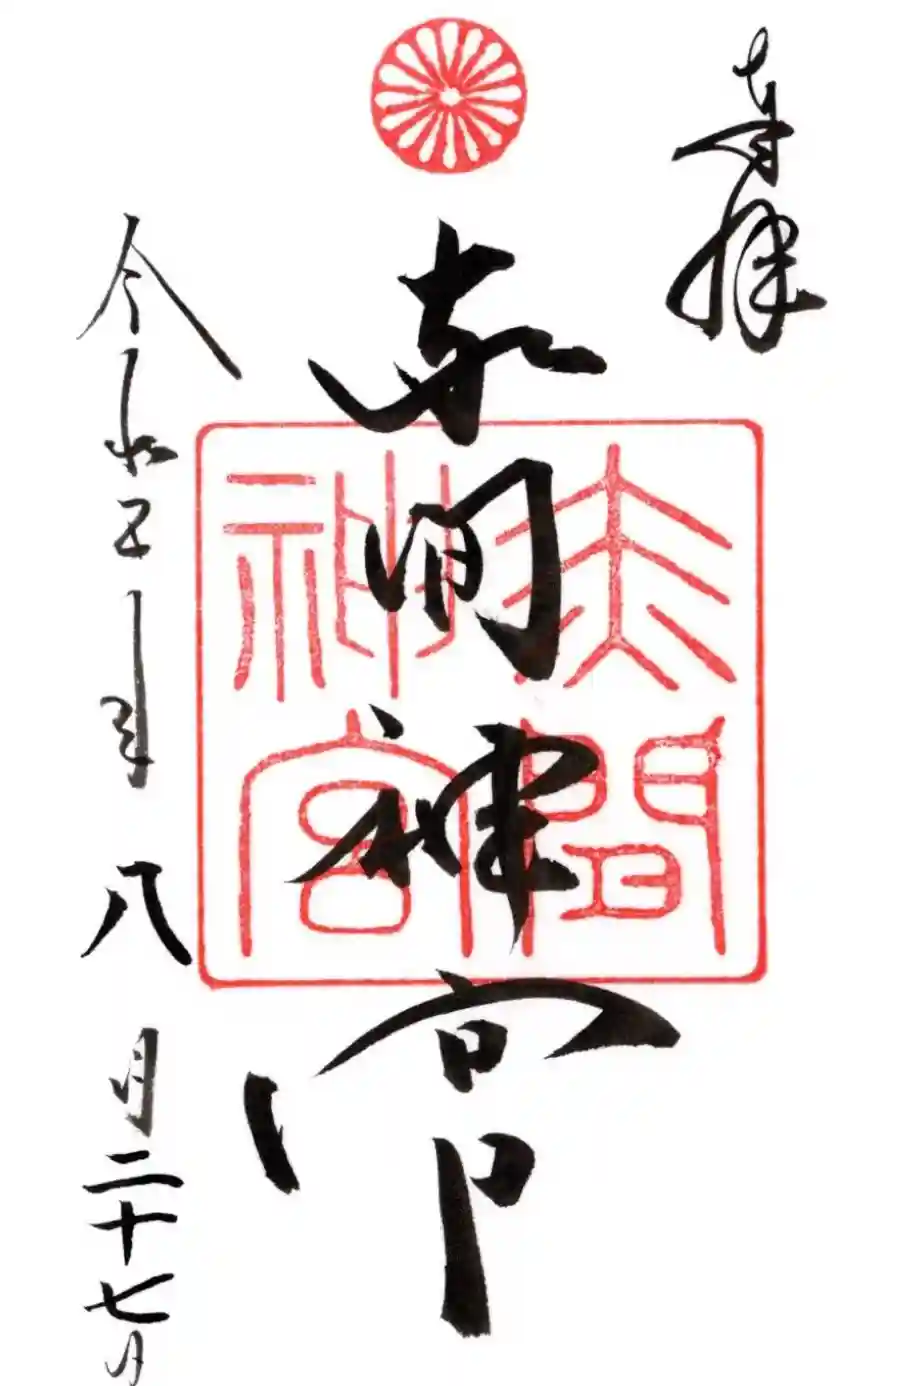 奉拝
赤間神宮
赤間
神宮
令和五年八月二十七日